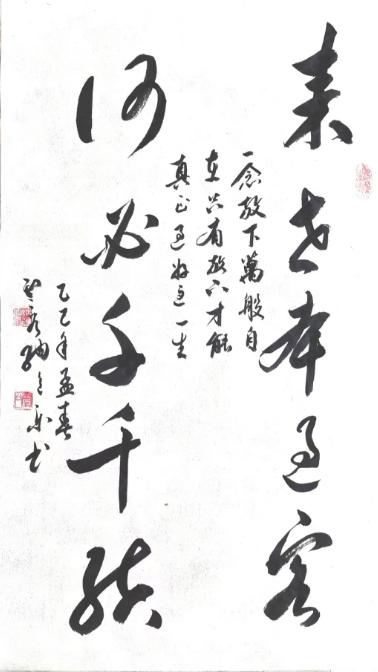 来世本过客
一念放下萬般自
在只有放下才能
真正过好这一生
何必千千结
乙巳年孟春
书